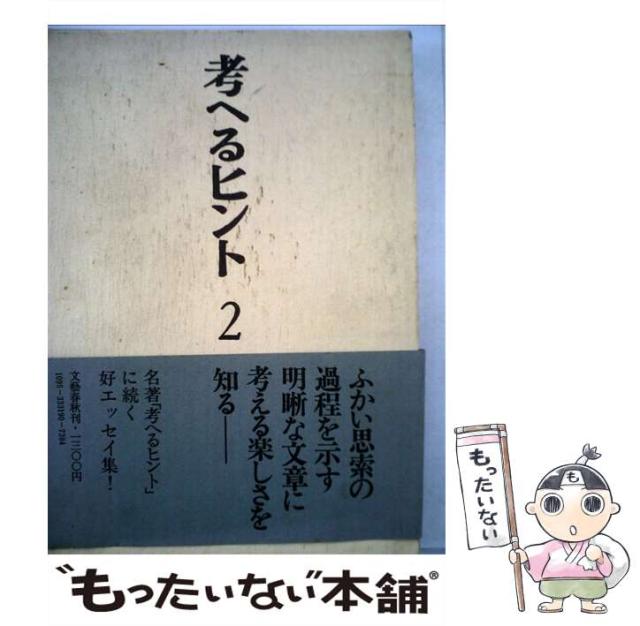 考へるヒント 2
ふかい思索の
過程を示す
明晰な文章に
考える楽しさを
知る——
名著「考へるヒント」
に続く
好エッセイ集!
文藝春秋刊・一三〇〇円
1095-333190-7384
もったいない
も
"もったいない"本舗®